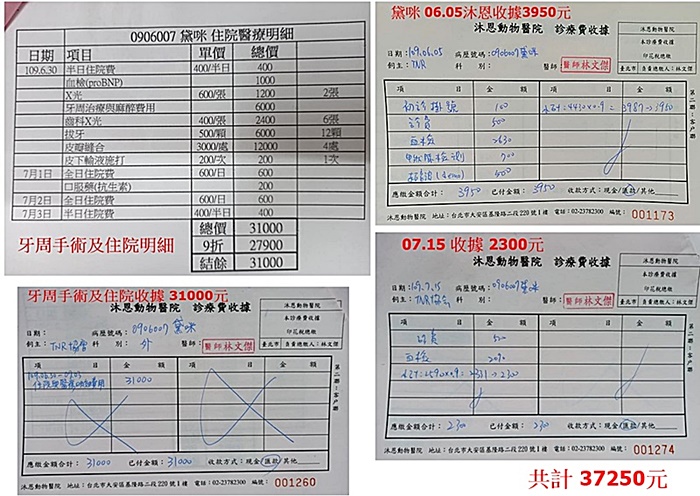 0906007 黛咪 住院醫療明細
日期 項目 單價 總價
109.6.30 半日住院費 400/半日 400
血檢(proBNP) 1000
X光 600/張 1200 2張
牙周治療與麻醉費用 6000
齒科X光 400/張 2400 6張
拔牙 500/顆 6000 12顆
皮瓣縫合 3000/處 12000 4處
皮下輸液施打 200/次 200 1次
7月1日 全日住院費 600/日 600
口服藥(抗生素) 200
7月2日 全日住院費 600/日 600
7月3日 半日住院費 400/半日 400
總價 31000
9折 27900
結餘 31000
牙周手術及住院明細
黛咪 06.05沐恩收據3950元
沐恩動物醫院 診療費收據
沐恩動物醫院
本診療費收據
印花稅總繳
臺北市 負責總繳人:林文傑
日期:109.06.05 病歷號碼:0906007黛咪
飼主:TNR 科 別: 醫師林文傑
項 目 金 額 項 目 金 額
初診掛號 100
診費 500
血檢 2630
甲狀腺檢測 700
應繳金額合計: 3950 已付金額: 3950 收款方式:現金/匯款/其他
沐恩動物醫院 地址:台北市大安區基隆路二段220號1樓 電話:02-23782300 編號: 001173
牙周手術及住院收據 31000元
沐恩動物醫院 診療費收據
沐恩動物醫院
本診療費收據
印花稅總繳
臺北市 負責總繳人:林文傑
日期: 病歷號碼:0906007 黛咪
飼主:TNR協會 科 別: 外 醫師: 醫師林文傑
項 目 金 額 項 目 金 額
31000
應繳金額合計: 31000 已付金額: 31000 收款方式:現金/匯款/其他
沐恩動物醫院 地址:台北市大安區基隆路二段220號1樓 電話:02-23782300 編號: 001260
07.15 收據 2300元
沐恩動物醫院 診療費收據
沐恩動物醫院
本診療費收據
印花稅總繳
臺北市 負責總繳人:林文傑
日期:109.7.15 病歷號碼:0906007黛咪
飼主:TNR協會 科 別: 醫師林文傑
項 目 金 額 項 目 金 額
診費 500
血檢 2090
應繳金額合計: 已付金額: 收款方式:現金/匯款/其他
沐恩動物醫院 地址:台北市大安區基隆路二段220號1樓 電話:02-23782300 編號: 001274
共計 37250元